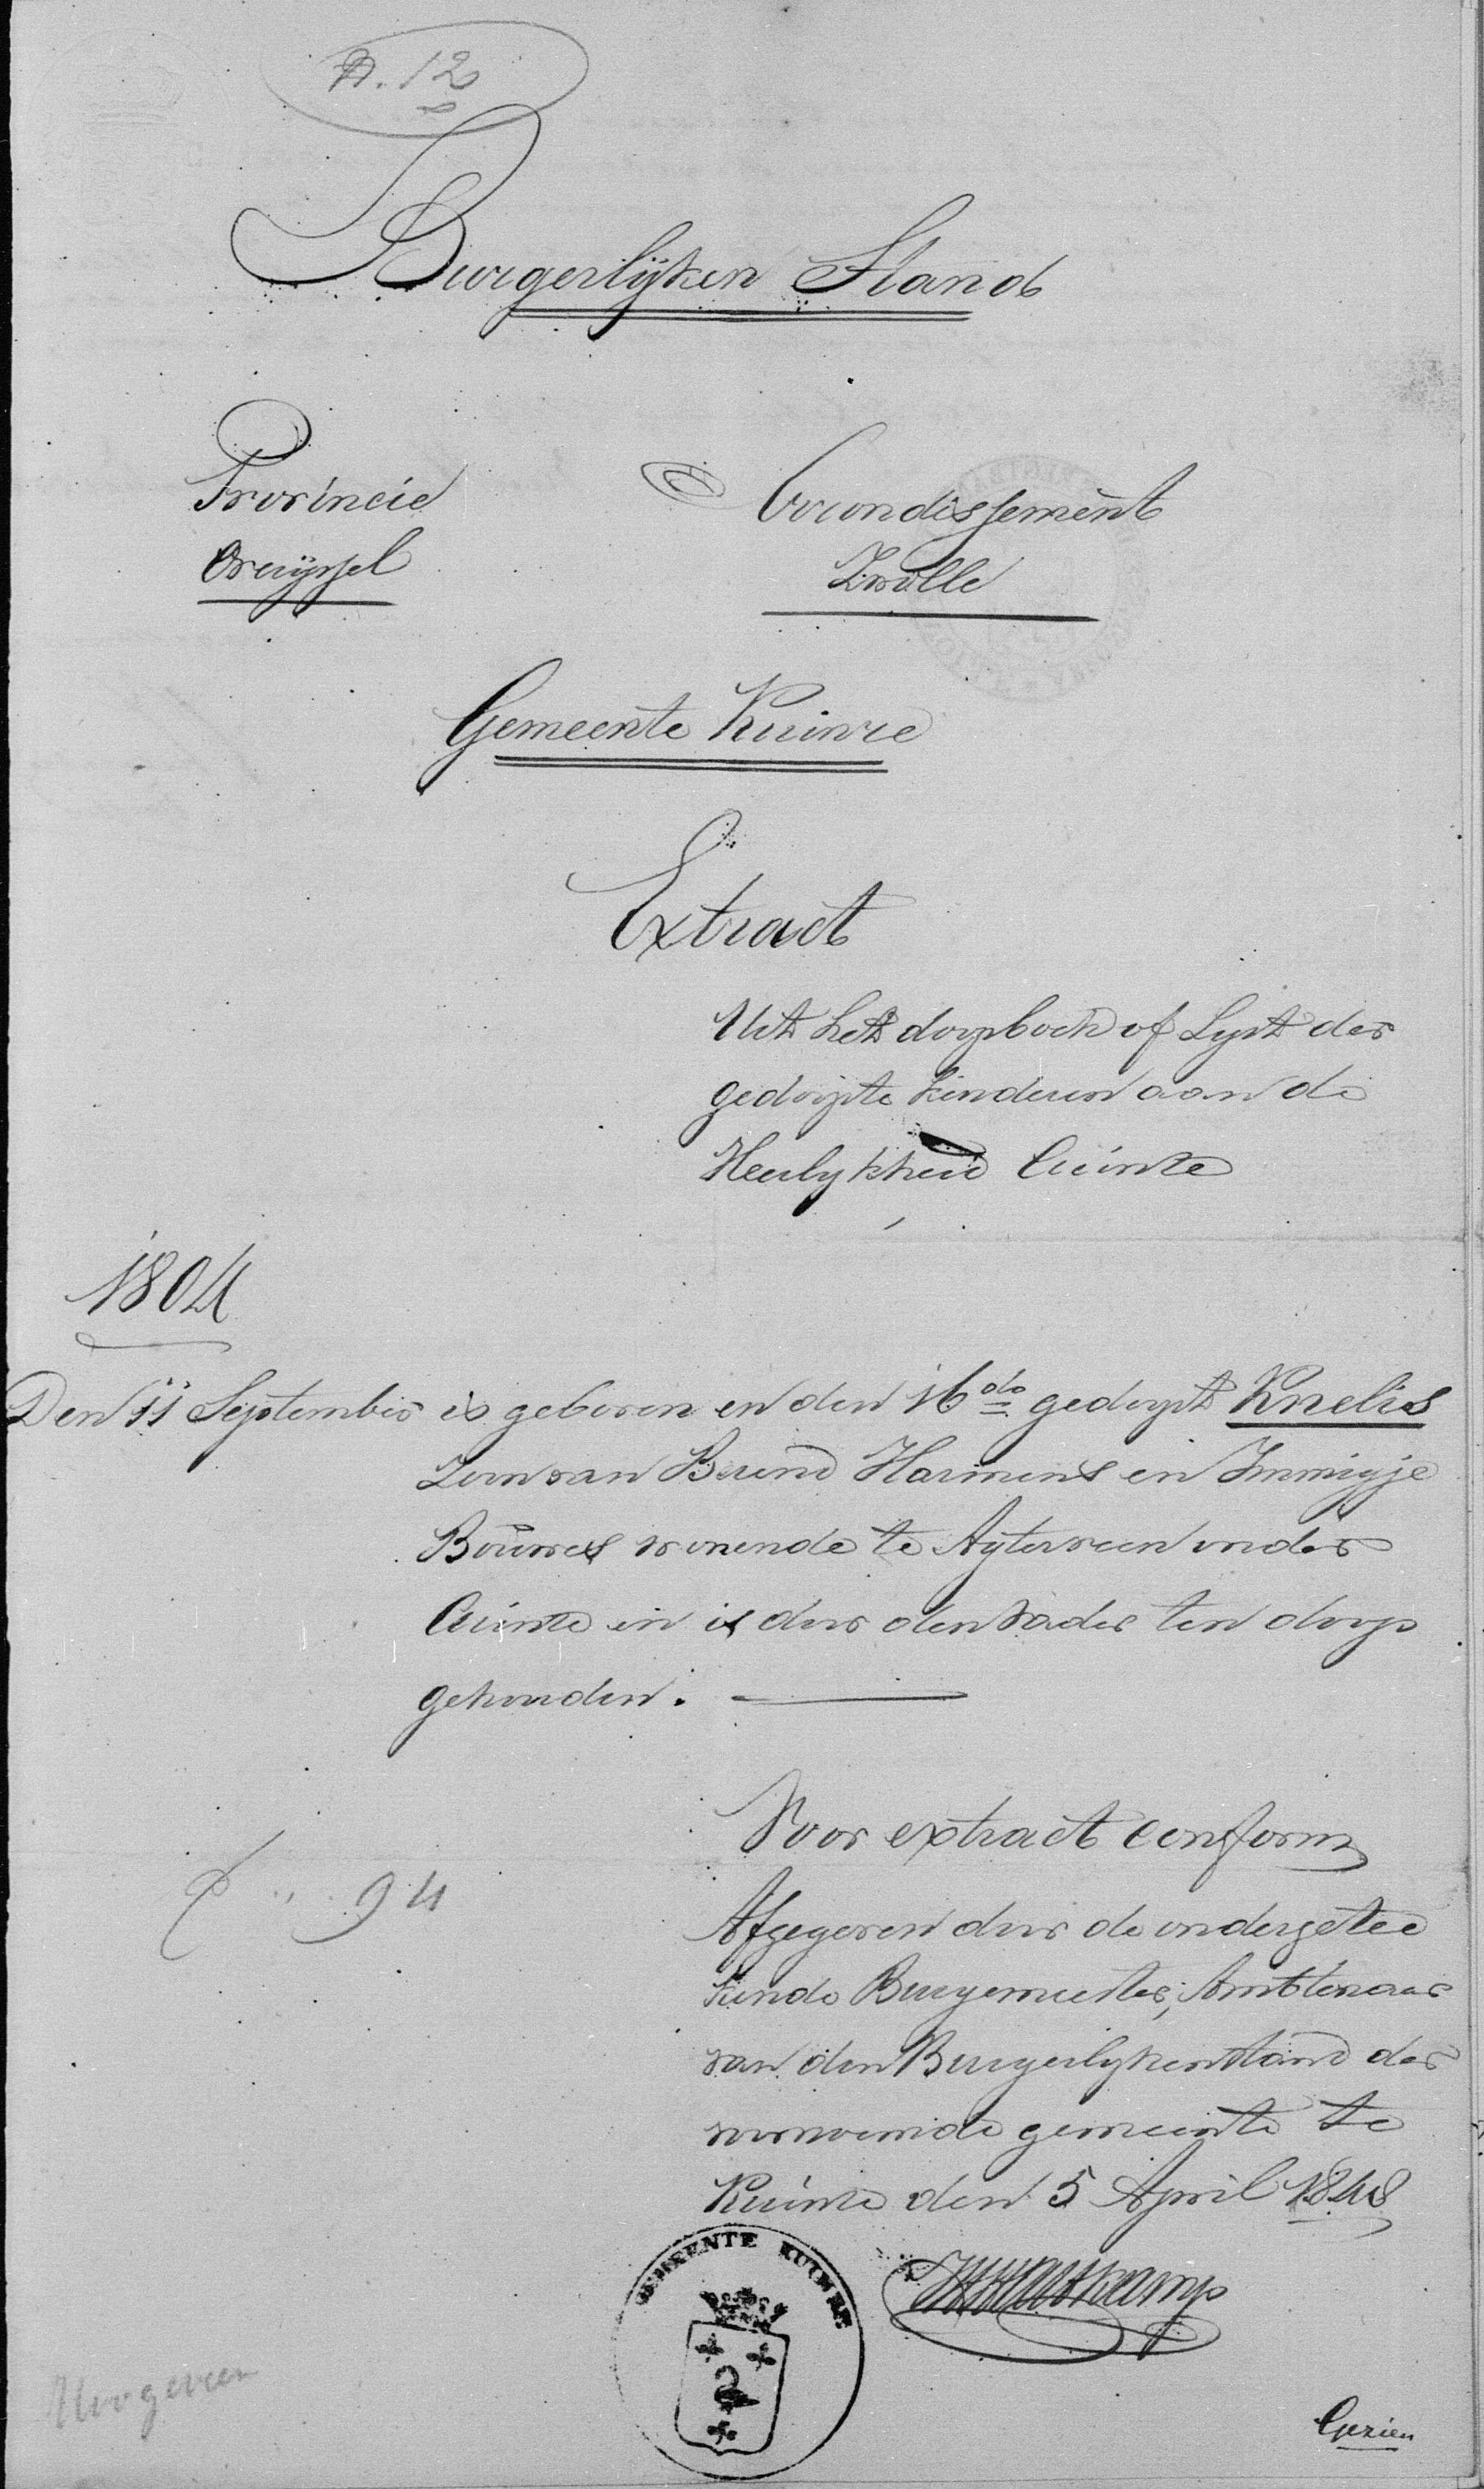 A. 12
Burgerlijken Stand
Provincie
Overijssel
Arrondissement
Zwolle
Gemeente Kuinre
Extract
Uit het doopboek of Lyst der
gedoopte kinderen aan de
Heerlykheid Cuinre
1804
Den 11 September is geboren en den 16do gedoopt Knelis
Zoon van Berend Harmens en Immigje
Bouwes wonende te Ayterveen onder
Cuinre en is door den vader ten doop
gehouden.
Voor extract conform
94
Afgegeven door de ondergetee
kende Burgemeester, Ambtenaar
van den Burgerlyken stand der
voornoemde gemeente te
Kuinre den 5 April 1848
GEMEENTE KUINRE
Hoogeveen
Gezien